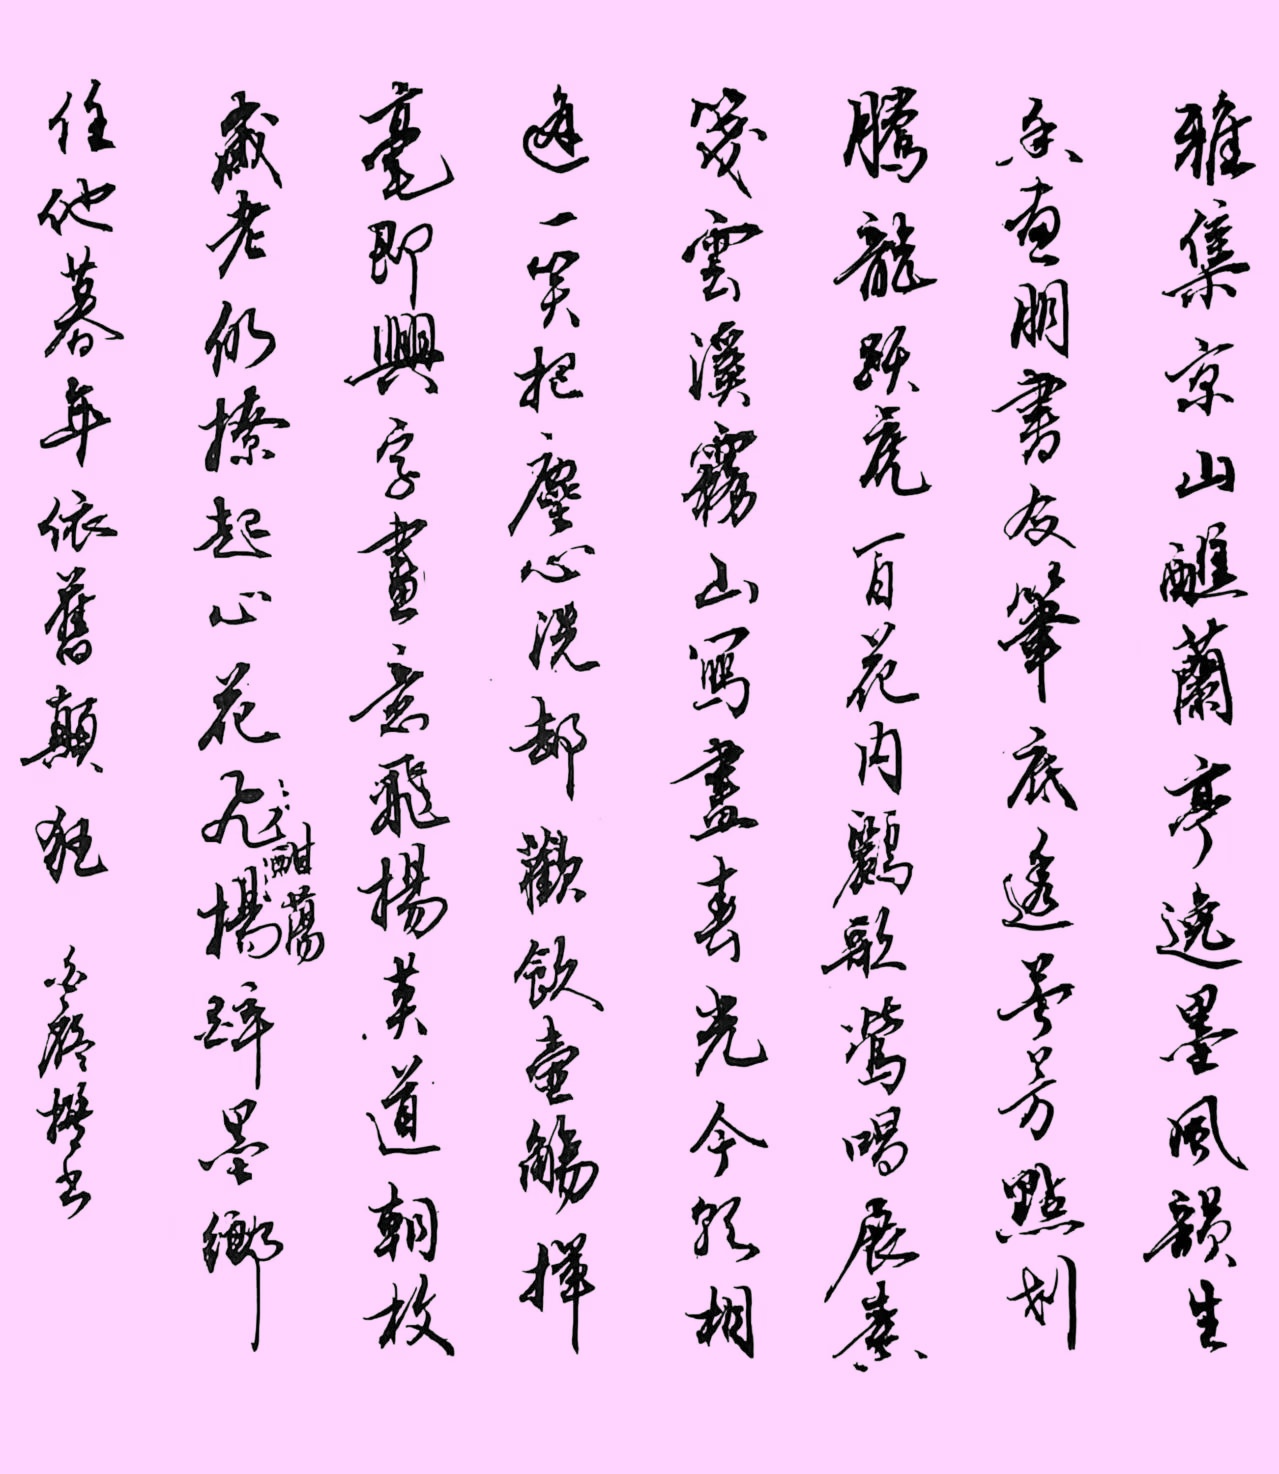 雅集京山醮蘭亭遶墨風韻生
香畫朋書友筆底透芬芳點划
騰龍跃虎百花内鸝歌鶯唱展素
箋雲溪霧山寫盡春光今念相
逢一笑把塵心洗却歡飲壺觴揮
毫即興字畫意飛揚莫道朝杖
歲老仍撩起心花飛揚踤墨鄉
酣蕩
任他暮年依舊顛狂
撰書